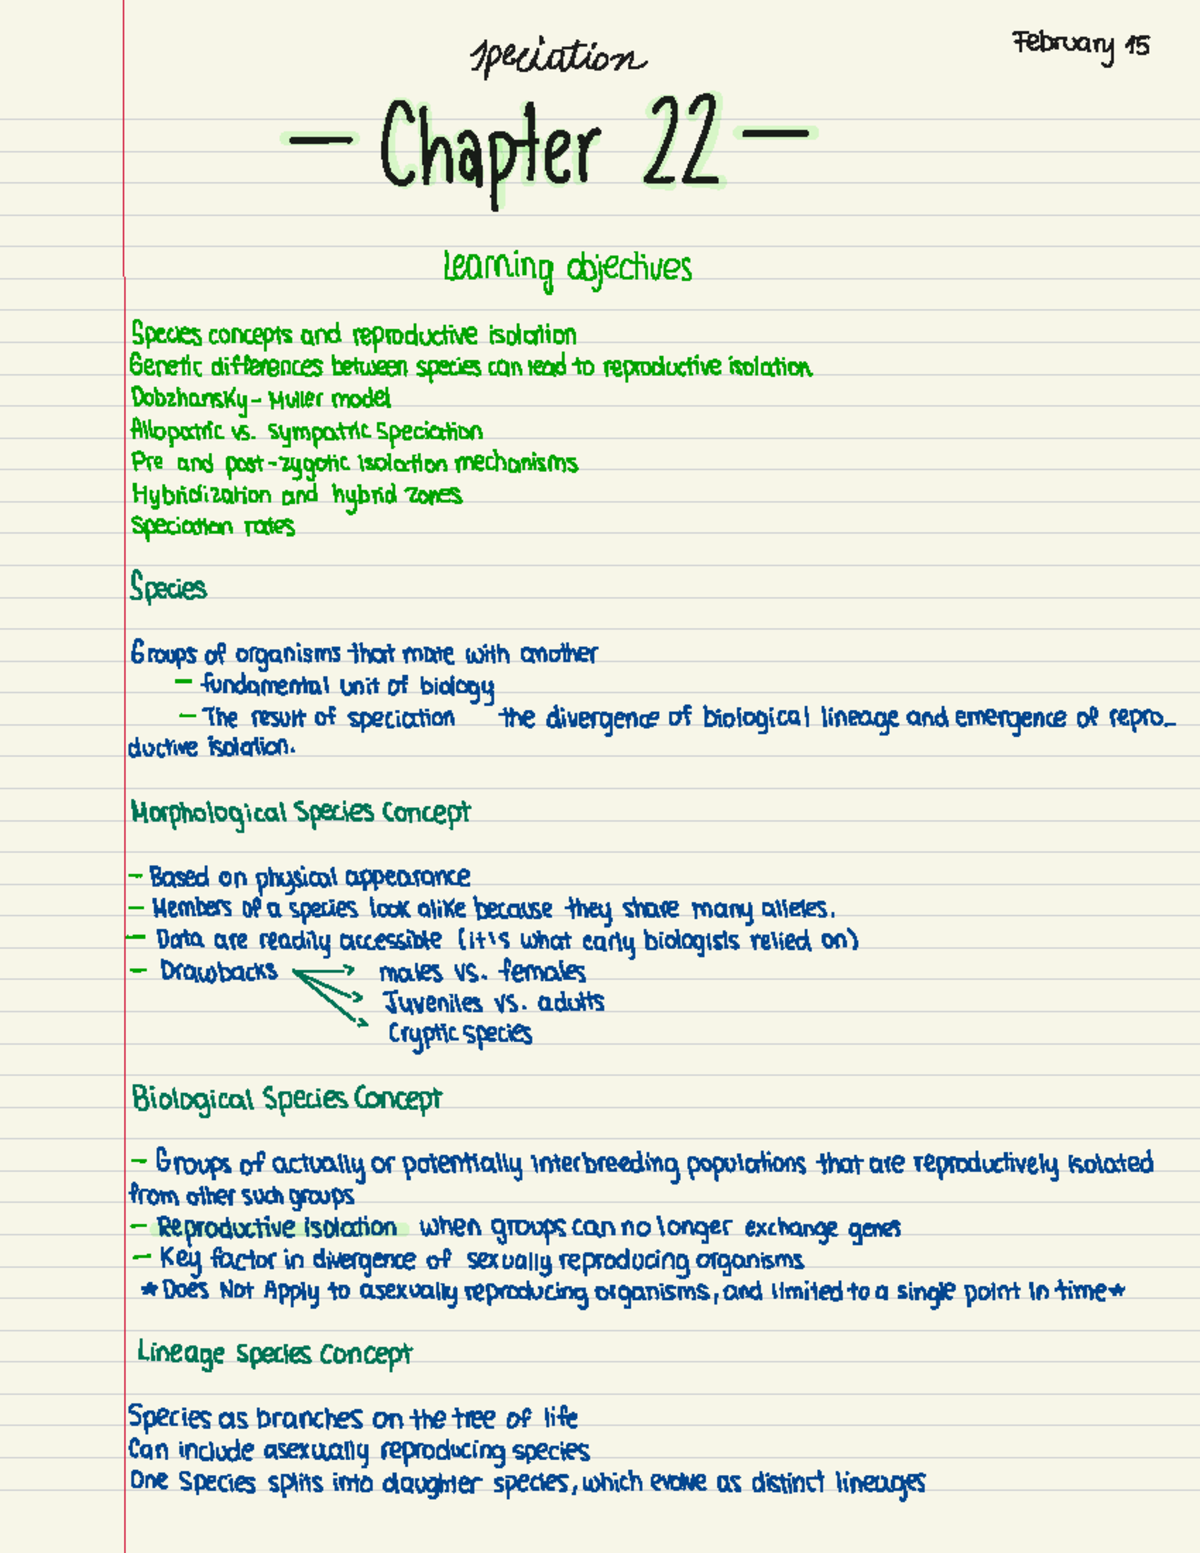 speciation
February 15
— Chapter 22 —
Learning objectives
Species concepts and reproductive isolation
Genetic differences between species can lead to reproductive isolation
Dobzhansky-Muller model
Allopatric vs. sympatric Speciation
Pre and post-zygotic isolation mechanisms
Hybridization and hybrid zones
Speciation rates
Species
Groups of organisms that mate with another
– fundamental unit of biology
– The result of speciation the divergence of biological lineage and emergence of repro-
ductive isolation.
Morphological Species Concept
– Based on physical appearance
– Members of a species look alike because they share many alleles.
– Data are readily accessible (it's what early biologists relied on)
– Drawbacks → males vs. females
→ Juveniles vs. adults
→ Cryptic species
Biological Species Concept
– Groups of actually or potentially interbreeding populations that are reproductively isolated
from other such groups
– Reproductive isolation when groups can no longer exchange genes
– Key factor in divergence of sexually reproducing organisms
*Does Not Apply to asexually reproducing organisms, and limited to a single point in time*
Lineage Species Concept
Species as branches on the tree of life
Can include asexually reproducing species
One Species splits into daughter species, which evolve as distinct lineages